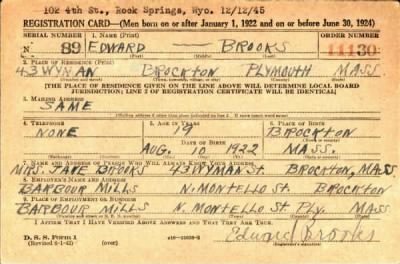 102 4th St., Rock Springs, Wyo. 12/12/45
REGISTRATION CARD—(Men born on or after January 1, 1922 and on or before June 30, 1924)
SERIAL NUMBER 1. NAME (Print) ORDER NUMBER
N 89 EDWARD — BROOKS 11130
2. PLACE OF RESIDENCE (Print)
43 WYMAN BROCKTON PLYMOUTH MASS.
(THE PLACE OF RESIDENCE GIVEN ON THE LINE ABOVE WILL DETERMINE LOCAL BOARD
JURISDICTION; LINE 2 OF REGISTRATION CERTIFICATE WILL BE IDENTICAL)
3. MAILING ADDRESS
SAME
4. TELEPHONE 5. AGE IN YEARS 6. PLACE OF BIRTH
NONE 19 BROCKTON
DATE OF BIRTH
AUG. 10 1922 MASS.
7. NAME AND ADDRESS OF PERSON WHO WILL ALWAYS KNOW YOUR ADDRESS
MRS. JANE BROOKS 43 WYMAN ST. BROCKTON, MASS.
8. EMPLOYER'S NAME AND ADDRESS
BARBOUR MILLS N. MONTELLO ST BROCKTON
9. PLACE OF EMPLOYMENT OR BUSINESS
BARBOUR MILLS N. MONTELLO ST PLY. MASS.
I AFFIRM THAT I HAVE VERIFIED ABOVE ANSWERS AND THAT THEY ARE TRUE.
D. S. S. Form 1
(Revised 6-1-42) Edward Brooks